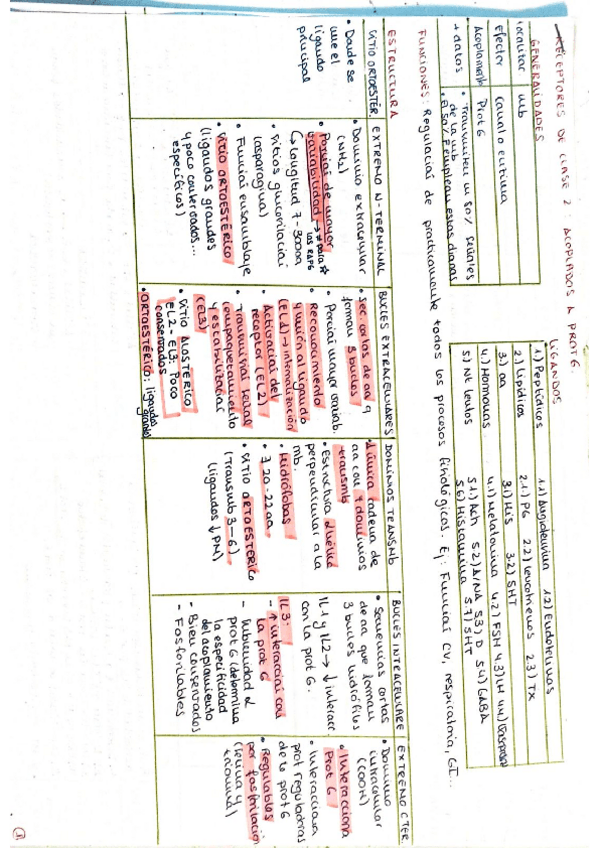 RECEPTORES DE CLASE 2 ACOPLADOS A PROT G.
GENERALIDADES
Localizar mb
Efector Canal o enzima
Acoplamto Prot G
+ datos
• Transmiten un 80% señales
de la mb
• El 50% F emplean estas dianas
LIGANDOS
1.) Peptídicos 1.1) Angiotensina 1.2) Endotelinas
2.) Lipídicos 2.1.) PG 2.2) Leucotrienos 2.3) TX
3.) aa 3.1) His 3.2) 5HT
4.) Hormonas 4.1) Melatonina 4.2) FSH 4.3) LH
5.) Nt lentos 5.1) Ach 5.2) A/NA 5.3) D 5.4) GABA
5.6) Histamina 5.7) 5HT
FUNCIONES: Regulación de prácticamente todos los procesos fisiológicos. Ej: Función CV, respiratoria, GI...
ESTRUCTURA
SITIO ORTOESTÉR.
• Donde se
une el
ligando
principal
EXTREMO N-TERMINAL
• Dominio extracelular
(NH2)
• Porción de mayor
variabilidad → para
los RAPG
↳ Longitud 7-300aa
• Sitios glucosilación
(asparagina)
• Función ensamblaje
• SITIO ORTOESTÉRICO
(ligandos grandes
y poco conservados...
específicos)
BUCLES EXTRACELULARES
• Sec. cortas de aa q
forman 3 bucles
• Porción mayor variab.
• Reconocimiento
y unión al ligando
(EL1) → internalización
• Activación del
receptor (EL2)
• Transmisión señal
(empaquetamiento
y estabilización
(EL3)
• SITIO ALOSTÉRICO
EL2-EL3: Poco
conservados
• ORTOESTÉRICO: ligandos
grandes
DOMINIOS TRANSMB
• Única cadena de
aa con 7 dominios
transmb
• Estructura α hélice
perpendicular a la
mb.
• Hidrófobas
• 20-22 aa
• SITIO ORTOESTERICO
(Transmb 3-6)
(ligandos ↓ PM)
BUCLES INTRACELULARE
• Secuencias cortas
de aa que forman
3 bucles hidrófilos
IL1 y IL2 → ↓ interacc.
con la prot G.
IL3:
- ↑ interacción con
la prot G
- Subunidad α
prot G (determina
la especificidad
del acoplamiento
- Bien conservados
- Fosforilables
EXTREMO C TER.
• Dominio
intracelular
(COOH)
• Interacciona
Prot G
• Interacciona
prot reguladoras
de la prot G
• Regulables
por fosforilación
(serina y
treonina)
①